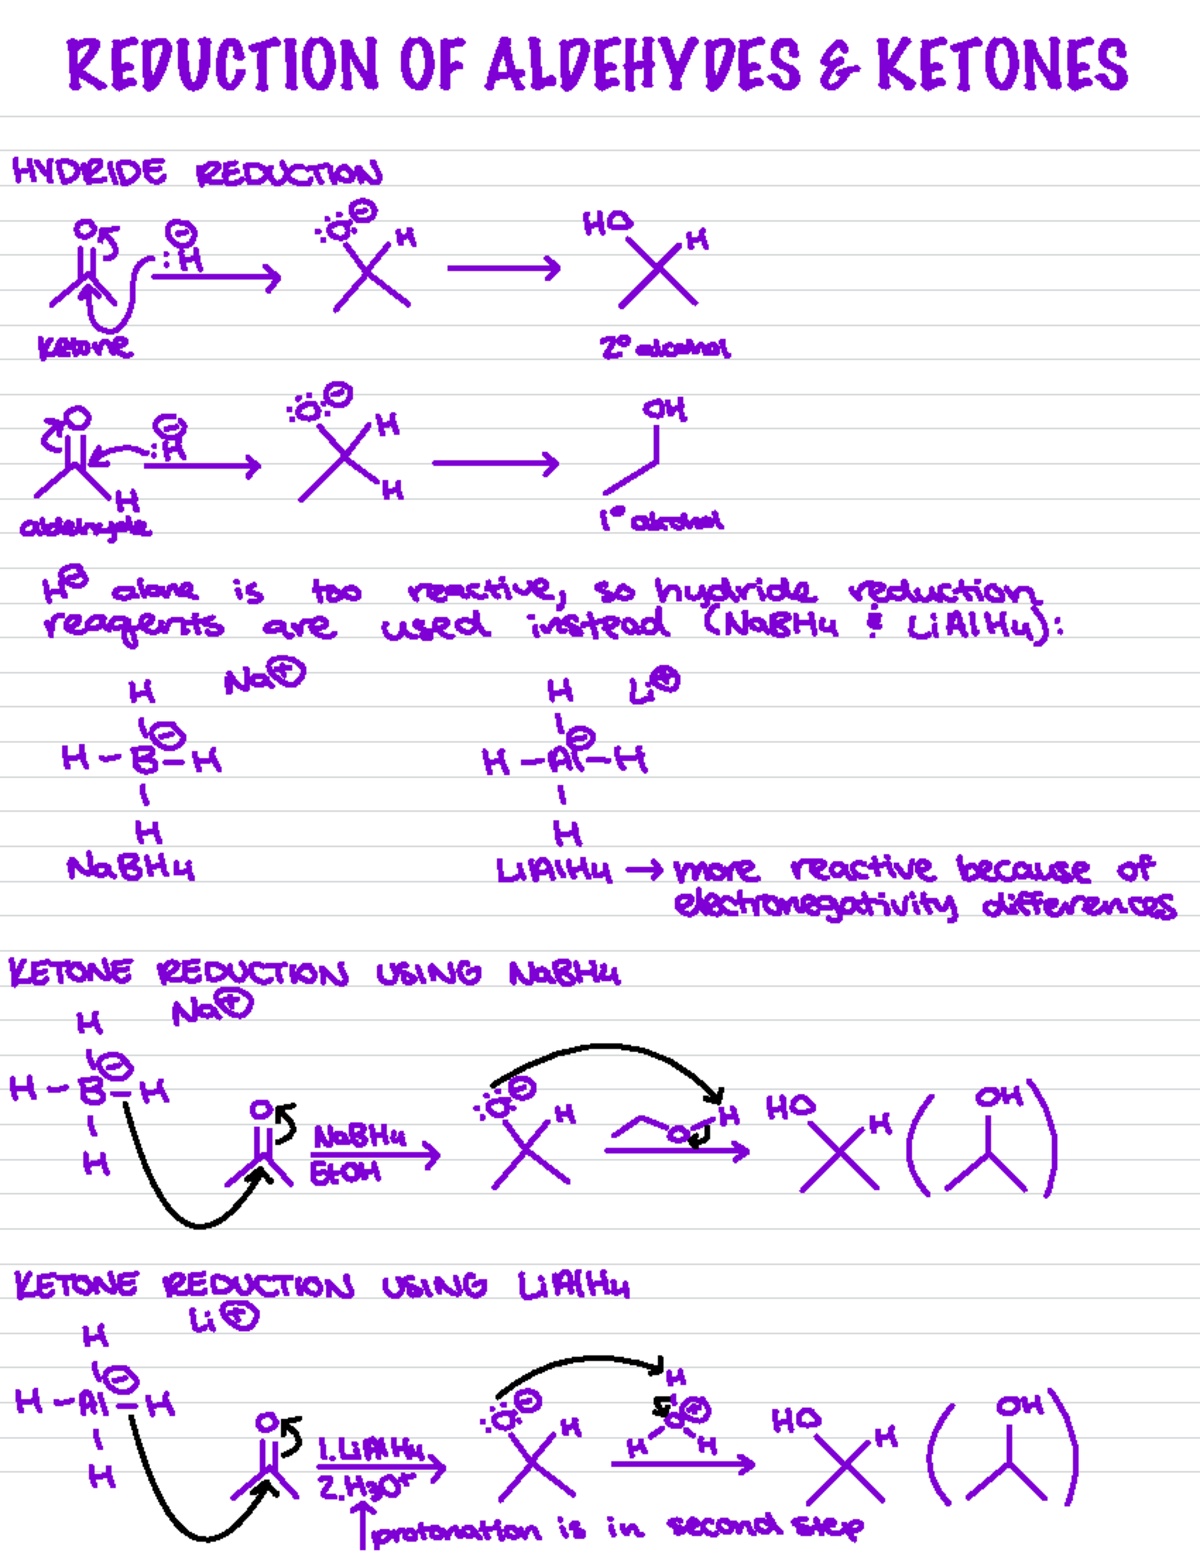 REDUCTION OF ALDEHYDES & KETONES
HYDRIDE REDUCTION
O ⊖ :H :Ö: ⊖ H HO H
ketone 2° alcohol
O ⊖ :H :Ö: ⊖ H H OH
H
aldehyde 1° alcohol
H⊖ alone is too reactive, so hydride reduction
reagents are used instead (NaBH4 & LiAlH4):
H Na⊕ H Li⊕
H-B⊖-H H-Al⊖-H
H H
NaBH4 LiAlH4 → more reactive because of
electronegativity differences
KETONE REDUCTION USING NaBH4
H Na⊕
H-B⊖-H O NaBH4 :Ö: ⊖ H O H HO H ( OH )
H EtOH
KETONE REDUCTION USING LiAlH4
H Li⊕
H-Al⊖-H O 1. LiAlH4 :Ö: ⊖ H H O⊕ H H HO H ( OH )
H 2. H3O+
↑ protonation is in second step